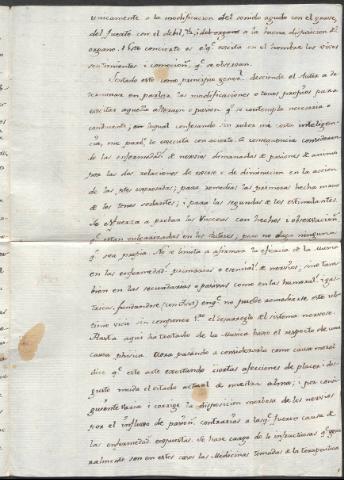 unicamente a la modificacion del sonido agudo con el grave,
del fuerte con el debil, i del organo a la buena disposicion del
organo. A este concierto es el qe. excita en el hombre los vivos
sentimientos i comocion qe. se observan.
Sentado esto como principio general desciende el Autor a de-
terminar en particr. las modificaciones o tonos propios para
excitar aquella alteracn. o pasion qe. se contempla necesaria o
conducente; en igual confesando sin rubor mi corta inteligen-
cia, me parece lo executa con acierto. A consequencia considera
de las enfermedads. de nervios demanadas de pasiones de animo
por las dos relaciones de exceso i de diminucion en la accion
de las ptes. expresadas; para remediar las primeras hecha mano
de los tonos sedantes; i para las segundas de los estimulantes.
Se esfuerza a probar las succesos con hechos i observaciones
qe. estan vulgarizadas en los Autores, pero no llega ninguna
qe. sea propia. No se limita a afirmar la eficacia de la Musica
en las enfermedads. primarias o esencials. de nervios, sino tam-
bien en las secundarias o parasas como en las humorals. i gas-
tricas, fundandose (con Tissot) en qe. no puede acaecer
sin componerse el desarreglo del sistema nervoso.
Hasta aqui ha tratado de la Musica baxo el respecto de una
causa phisica. Pasa pasando a considerarla como causa moral
dice qe. este arte excitando ciertas afecciones de placer i dis-
gusto muda el estado actual de nuestra alma; i por consi-
guiente varia i corrige la disposicion morbosa de los nervios
por el influxo de pasions. contrarias a las qe. fueron causa de
las enfermedads. expuestas. Se hace cargo de lo infructuosas qe. gene-
ralmente son en estos casos las Medicinas tomadas de la terapeutica